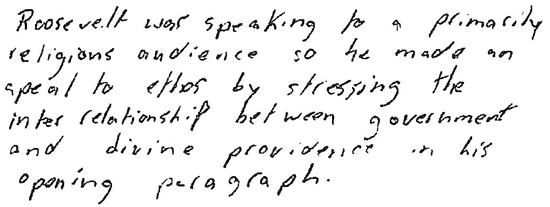 Roosevelt was speaking to a primarily
religious audience so he made an
apeal to ethos by stressing the
inter relationship between government
and divine providence in his
opening paragraph.